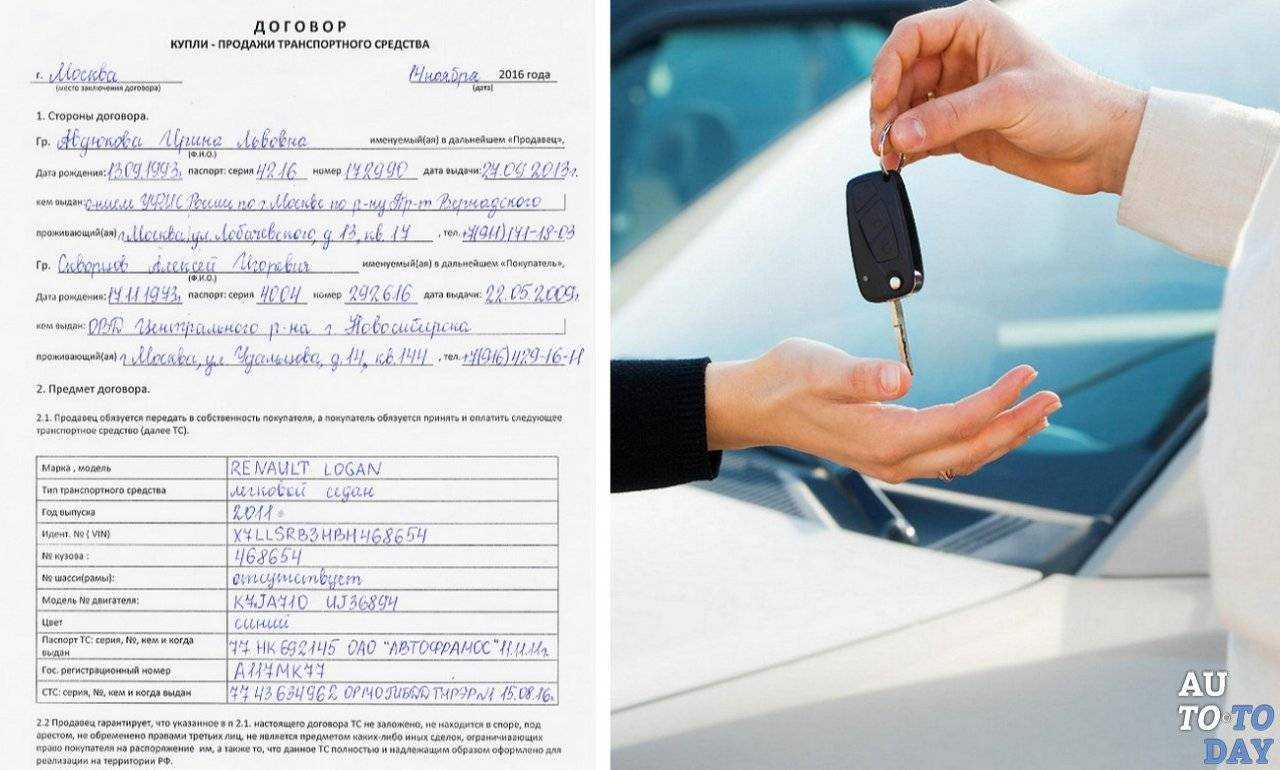 ДОГОВОР
КУПЛИ - ПРОДАЖИ ТРАНСПОРТНОГО СРЕДСТВА
г. Москва 14 ноября 2016 года
(место заключения договора) (дата)
1. Стороны договора.
Гр. Авдюкова Ирина Львовна именуемый(ая) в дальнейшем «Продавец»,
(Ф.И.О.)
Дата рождения: 13.09.1993, паспорт: серия 4216 номер 172990 дата выдачи: 27.09.2013г.
кем выдан: отделом УФМС России по г. Москве по р-ну Пр-т Вернадского
проживающий(ая) г. Москва, ул. Лобачевского, д 13, кв. 17, тел. +7(911)171-18-03
Гр. Скворцов Алексей Игоревич именуемый(ая) в дальнейшем «Покупатель»,
(Ф.И.О.)
Дата рождения: 17.11.1973, паспорт: серия 4004 номер 292616 дата выдачи: 22.05.2009,
кем выдан: ОВД Центрального р-на г Новосибирска
проживающий(ая) г Москва, ул Удальцова, д.14, кв.144, тел. +7(916)429-16-11
2. Предмет договора.
2.1. Продавец обязуется передать в собственность покупателя, а покупатель обязуется принять и оплатить следующее
транспортное средство (далее ТС).
Марка , модель RENAULT LOGAN
Тип транспортного средства легковой седан
Год выпуска 2011
Идент. № ( VIN) X7LLSRB3HBH468654
№ кузова : 468654
№ шасси(рамы): отсутствует
Модель № двигателя: K7JA710 UJ36894
Цвет синий
Паспорт ТС: серия, №, кем и когда
выдан 77 НК 692145 ОАО "АВТОФРАМОС" 11.11.11г.
Гос. регистрационный номер А117МК77
СТС: серия, №, кем и когда выдан 77 43 634962 15.08.16г.
2.2 Продавец гарантирует, что указанное в п 2.1. настоящего договора ТС не заложено, не находится в споре, под
арестом, не обременено правами третьих лиц, не является предметом каких-либо иных сделок, ограничивающих
право покупателя на распоряжение им, а также то, что данное ТС полностью и надлежащим образом оформлено для
реализации на территории РФ.
AU
TO·TO
DAY